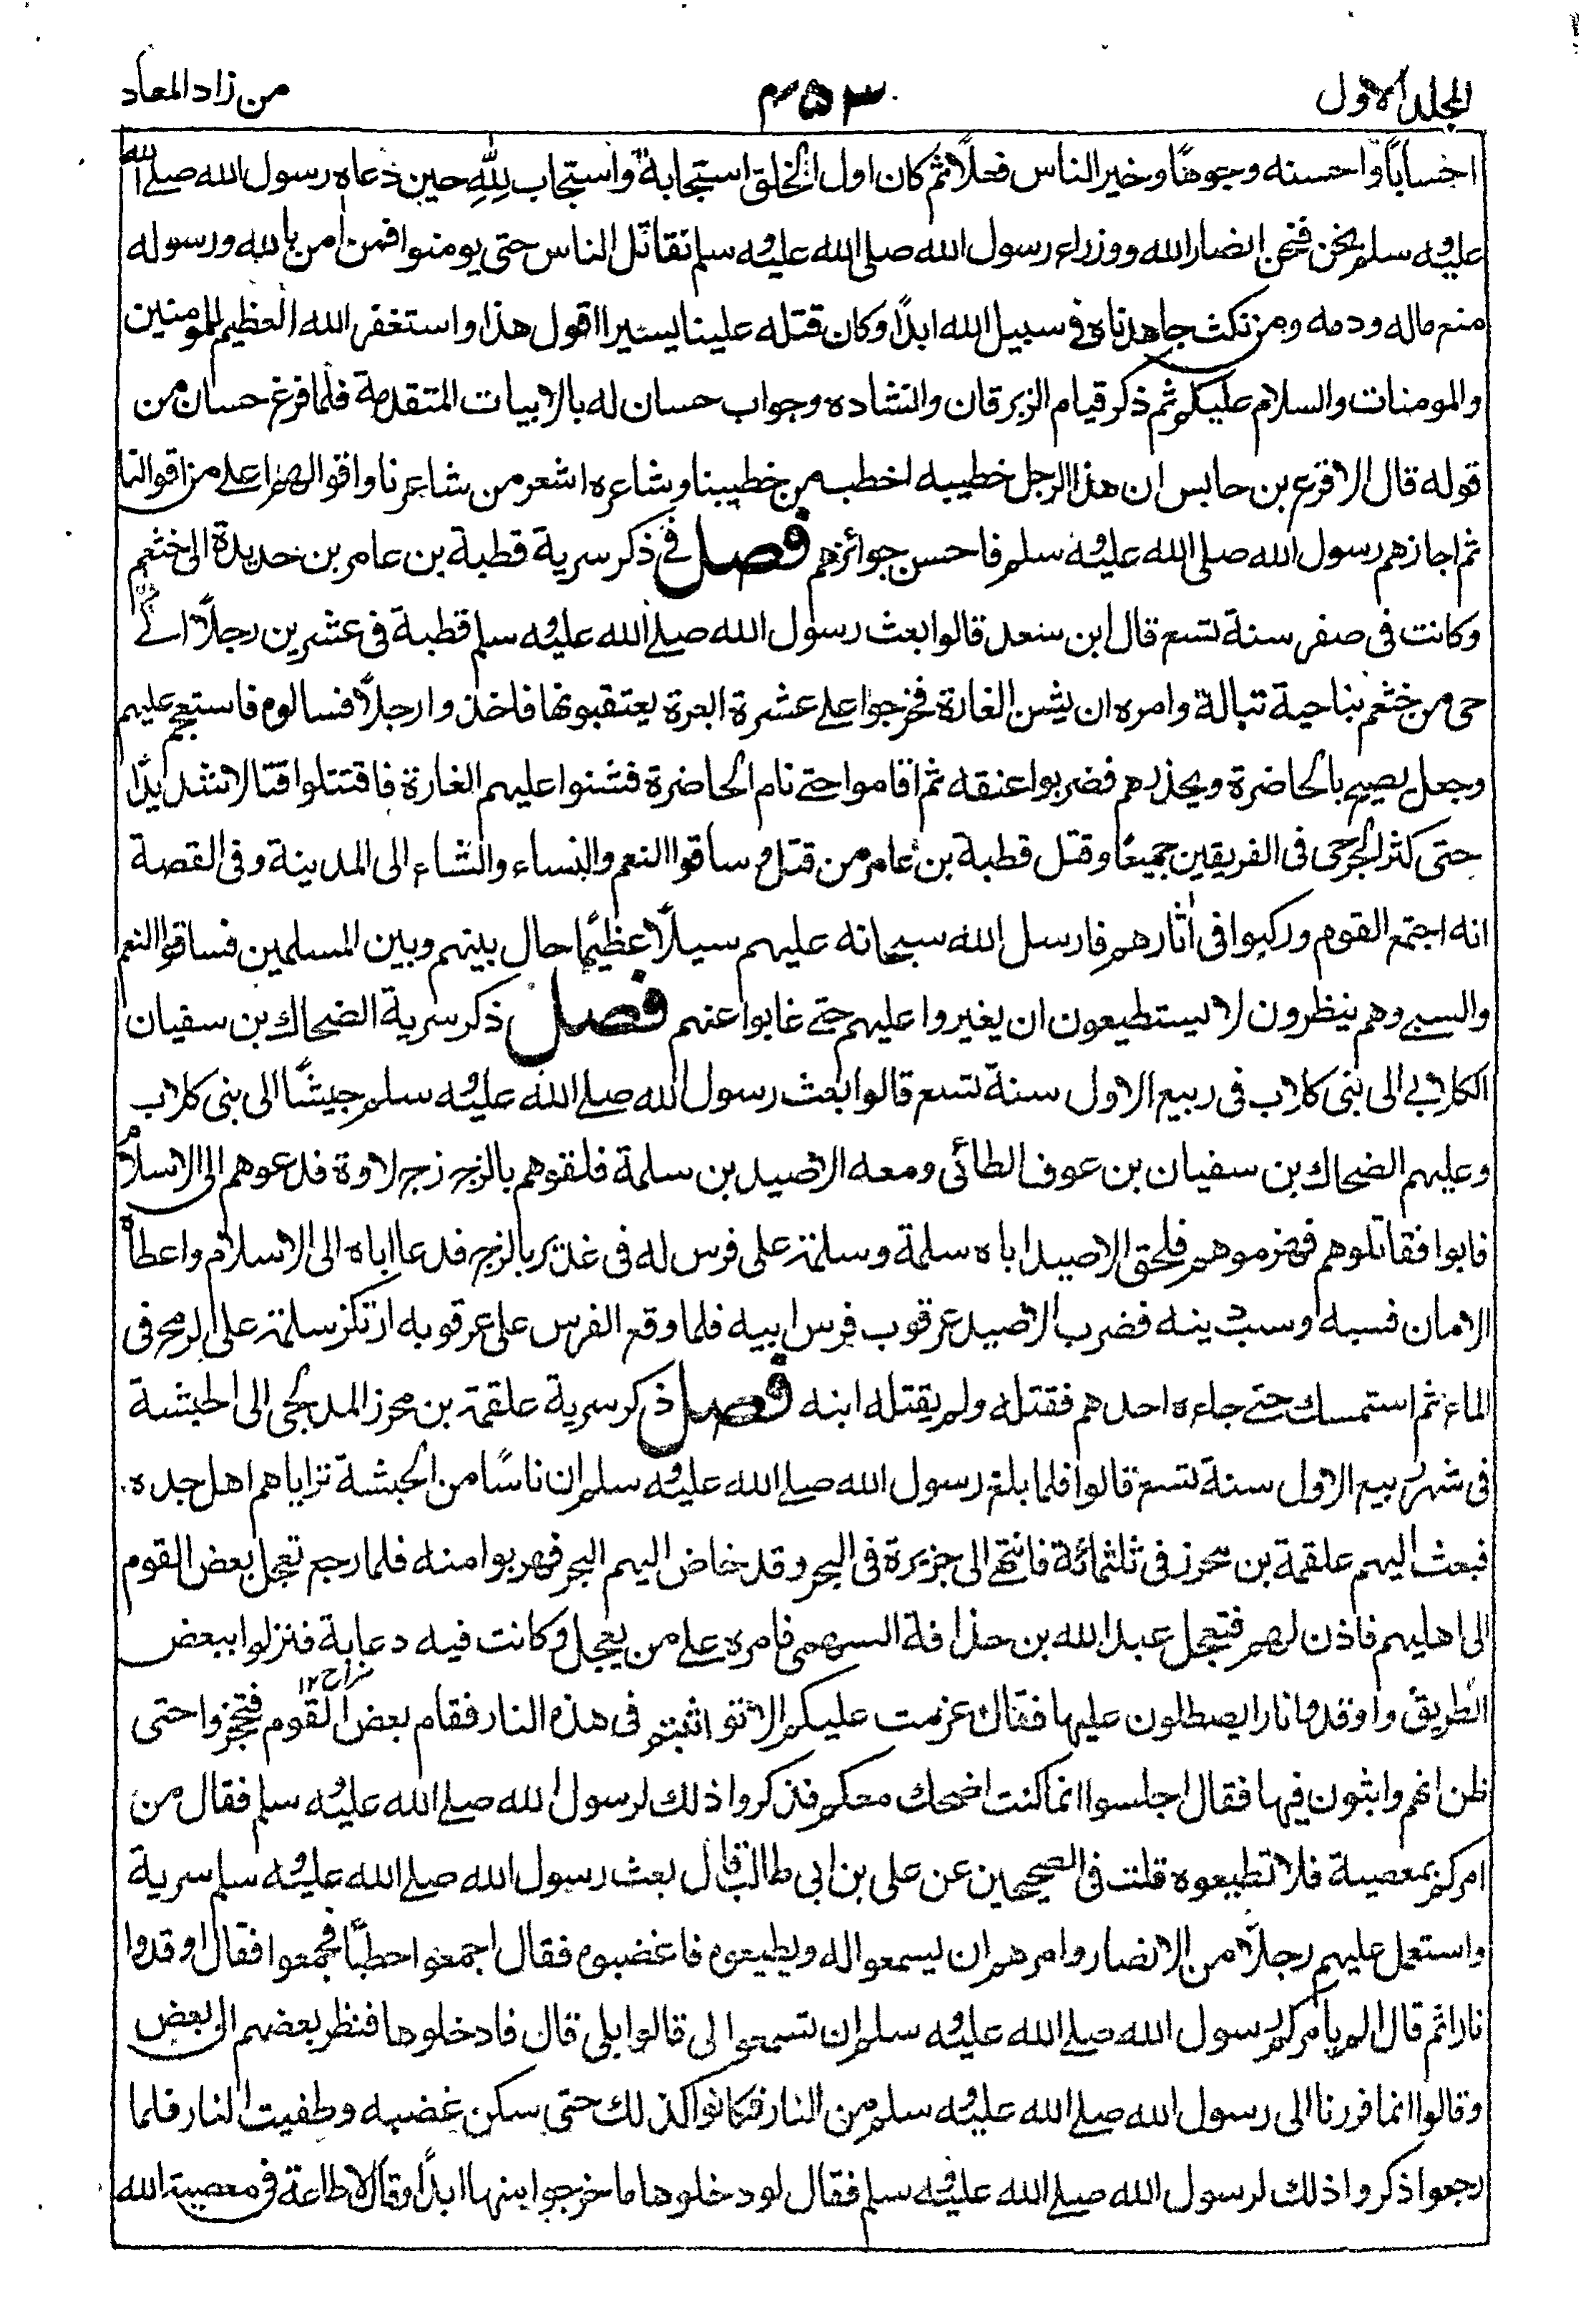 المجلد الاول
۴۵۳
من زاد المعاد
احسابًا واحسنه وجوهًا وخير الناس فعلًا ثم كان اول الخلق استجابة واستجاب لله حين دعاه رسول الله صلے الله
عليه وسلم نحن فنحن انصار الله ووزراء رسول الله صلى الله عليه وسلم نقاتل الناس حتى يومنوا فمن امن بالله ورسوله
منع ماله ودمه ومن نكث جاهدناه فى سبيل الله ابدًا وكان قتله علينا يسيرا اقول هذا واستغفر الله العظيم للمومنين
والمومنات والسلام عليكم ثم ذكر قيام الزبرقان وانشاده وجواب حسان له بالابيات المتقدمة فلما فرغ حسان من
قوله قال الاقرع بن حابس ان هذا الرجل خطيبه اخطب من خطيبنا وشاعره اشعر من شاعرنا واقوالهم اعلے من اقوالنا
ثم اجازهم رسول الله صلى الله عليه وسلم فاحسن جوائزهم فصل فے ذكر سرية قطبة بن عامر بن حديدة الى خثعم
وكانت فى صفر سنة تسع قال ابن سعد قالوا بعث رسول الله صلے الله عليه وسلم قطبة فى عشرين رجلًا الے
حى من خثعم بناحية تبالة وامره ان يشن الغارة فخرجوا علے عشرة ابعرة يعتقبونها فاخذوا رجلًا فسالوه فاستعجم عليهم
وجعل يصيح بالحاضرة ويحذرهم فضربوا عنقه ثم اقاموا حتے نام الحاضرة فشنوا عليهم الغارة فاقتتلوا قتالا شديدًا
حتى كثر الجرحى فى الفريقين جميعًا وقتل قطبة بن عامر من قتل وساقوا النعم والنساء والشاء الى المدينة وفى القصة
انه اجتمع القوم وركبوا فى اثارهم فارسل الله سبحانه عليهم سيلًا عظيمًا حال بينهم وبين المسلمين فساقوا النعم
والسبے وهم ينظرون لا يستطيعون ان يغيروا عليهم حتے غابوا عنهم فصل ذكر سرية الضحاك بن سفيان
الكلابے الى بنى كلاب فى ربيع الاول سنة تسع قالوا بعث رسول الله صلے الله عليه وسلم جيشًا الى بنى كلاب
وعليهم الضحاك بن سفيان بن عوف الطائى ومعه الاصيد بن سلمة فلقوهم بالزج زج لاوة فدعوهم الى الاسلام
فابوا فقاتلوهم فهزموهم فلحق الاصيد اباه سلمة وسلمة على فرس له فى غدير بالزج فدعا اباه الى الاسلام واعطاه
الامان فسبه وسب دينه فضرب الاصيد عرقوب فرس ابيه فلما وقع الفرس على عرقوبه ارتكز سلمة على الرمح فى
الماء ثم استمسك حتے جاءه احدهم فقتله ولم يقتله ابنه فصل ذكر سرية علقمة بن محرز المدلجى الى الحبشة
فى شهر ربيع الاول سنة تسع قالوا فلما بلغ رسول الله صلے الله عليه وسلم ان ناسًا من الحبشة تراياهم اهل جده
فبعث اليهم علقمة بن محرز فى ثلثمائة فانتهے الى جزيرة فى البحر وقد خاض اليهم البحر فهربوا منه فلما رجع تعجل بعض القوم
الى اهليهم فاذن لهم فتعجل عبد الله بن حذافة السهمى فامره علے من يعجل وكانت فيه دعابة فنزلوا ببعض
مزاح ۱۲
الطريق واوقدوا نارا يصطلون عليها فقال عزمت عليكم الا تواثبتم فى هذه النار فقام بعض القوم فتحجزوا حتى
ظن انهم واثبون فيها فقال اجلسوا انما كنت اضحك معكم فذكروا ذلك لرسول الله صلے الله عليه وسلم فقال من
امركم بمعصية فلا تطيعوه قلت فى الصحيحين عن على بن ابى طالب قال بعث رسول الله صلے الله عليه وسلم سرية
واستعمل عليهم رجلًا من الانصار وامرهم ان يسمعوا له ويطيعوه فاغضبوه فقال اجمعوا حطبًا فجمعوا فقال اوقدوا
نارا ثم قال الم يامركم رسول الله صلے الله عليه وسلم ان تسمعوا لى قالوا بلى قال فادخلوها فنظر بعضهم الى بعض
وقالوا انما فررنا الى رسول الله صلے الله عليه وسلم من النار فكانوا كذلك حتى سكن غضبه وطفيت النار فلما
رجعوا ذكروا ذلك لرسول الله صلے الله عليه وسلم فقال لو دخلوها ما خرجوا منها ابدًا وقال لا طاعة فى معصية الله